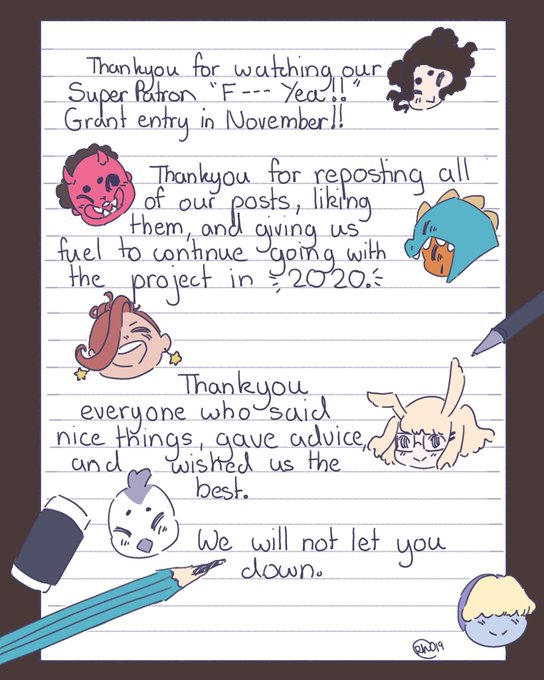 Thankyou for watching our
Super Patron "F --- Yea!!"
Grant entry in November!!
Thankyou for reposting all
of our posts, liking
them, and giving us
fuel to continue going with
the project in 2020.
Thankyou
everyone who said
nice things, gave advice,
and wished us the
best.
We will not let you
down.